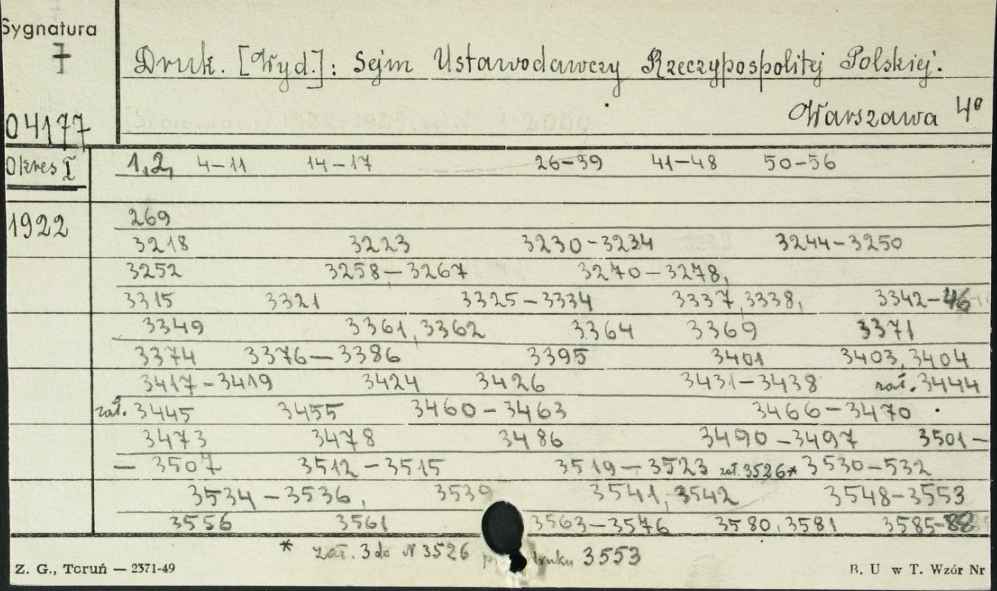 Sygnatura
7
Druk. [Wyd.]: Sejm Ustawodawczy Rzeczypospolitej Polskiej.
04177 Warszawa 4º
Okres I 1,2, 4-11 14-17 26-39 41-48 50-56
1922 269
3218 3223 3230-3234 3244-3250
3252 3258-3267 3270-3278,
3315 3321 3325-3334 3337, 3338, 3342-46
3349 3361, 3362 3364 3369 3371
3374 3376-3386 3395 3401 3403, 3404
3417-3419 3424 3426 3431-3438 zał. 3444
zał. 3445 3455 3460-3463 3466-3470
3473 3478 3486 3490-3497 3501-
- 3507 3512-3515 3519-3523 zał. 3526* 3530-532
3534-3536, 3539 3541, 3542 3548-3553
3556 3561 3563-3576 3580, 3581 3585-88
* zał. 3 do N 3526 druku 3553
Z. G., Toruń — 2371-49 B. U w T. Wzór Nr